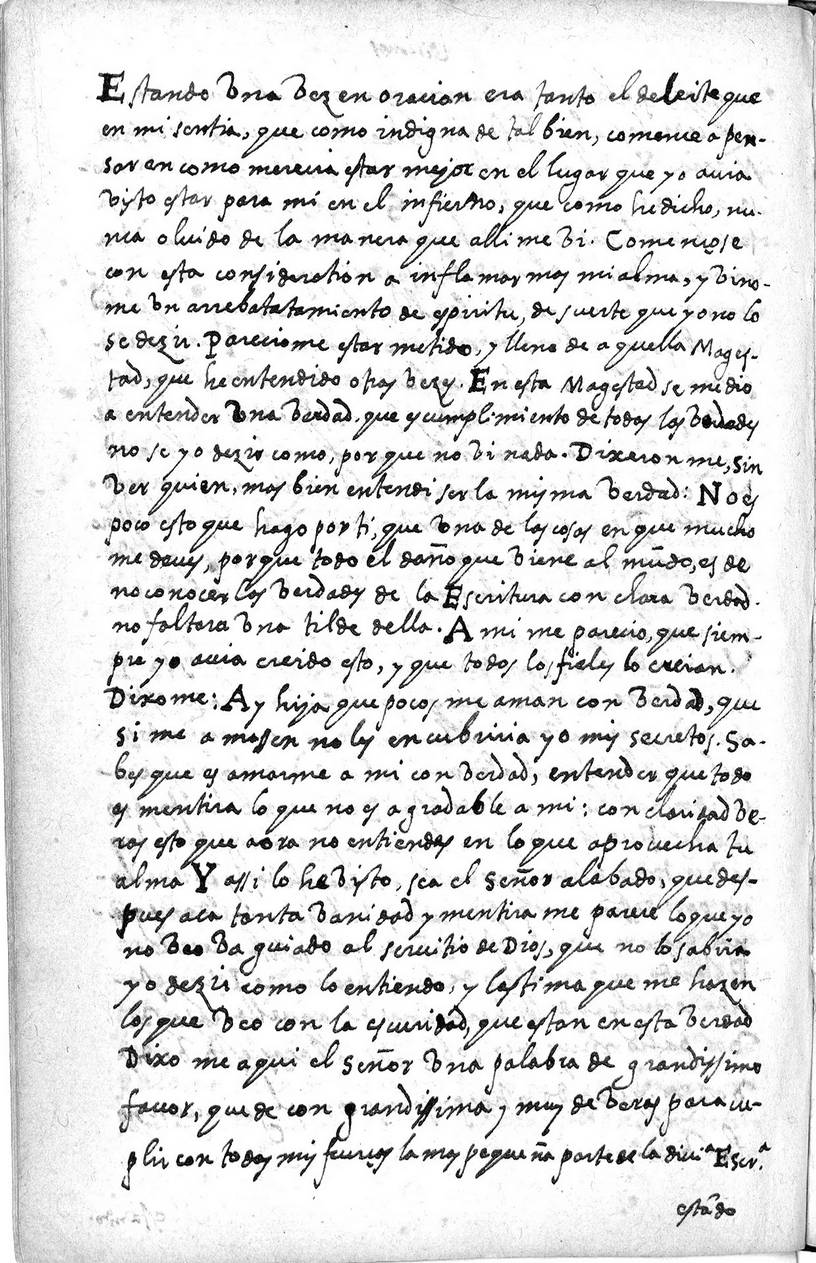 Estando Vna Vez en oracion era tanto el deleite que
en mi sentia, que como indigna de tal bien, comence a pen-
sar en como merecia estar mejor en el lugar que yo auia
Visto estar para mi en el infierno, que como he dicho, nu-
nca oluido de la manera que alli me Vi. Començose
con esta consideration a inflamar mas mi alma, y Vino-
me Vn arrebatatamiento de espiritu, de suerte que yo no lo
se dezir. Pareciome estar metido, y lleno de aquella Mages-
tad, que he entendido otras Vezes. En esta Magestad se me dio
a entender Vna Verdad. que es cumplimiento de todas las Verdades
no se yo dezir como, por que no Vi nada. Dixeron me, sin
Ver quien, mas bien entendi ser la misma Verdad: No es
poco esto que hago por ti, que Vna de las cosas en que mucho
me deues, porque todo el daño que Viene al mũdo, es de
no conocer las Verdades de la Escritura con clara Verdad.
no faltara Vna tilde della. A mi me parecio, que siem-
pre yo auia creido esto, y que todos los fieles lo creian.
Dixome: Ay hija que pocos me aman con Verdad, que
si me amassen no les encubriria yo mis secretos. Sa-
bes que es amarme a mi con Verdad, entender que todo
es mentira lo que no es agradable a mi: con claridad Ve-
ras esto que aora no entiendes en lo que aprouecha tu
alma Y assi lo he Visto, sea el Señor alabado, que des-
pues aca tanta Vanidad y mentira me parece lo que yo
no Veo Va guiado al seruitio de Dios, que no lo sabria
yo dezir como lo entiendo, y lastima que me hazen
los que Veo con la escuridad, que estan en esta Verdad
Dixo me aqui el Señor Vna palabra de grandissimo
fauor, que de con grandissima y muy de Veras para cu-
plir con todas mis fuerças la mas pequeña parte de la diui.ª Escr.ª
estãdo